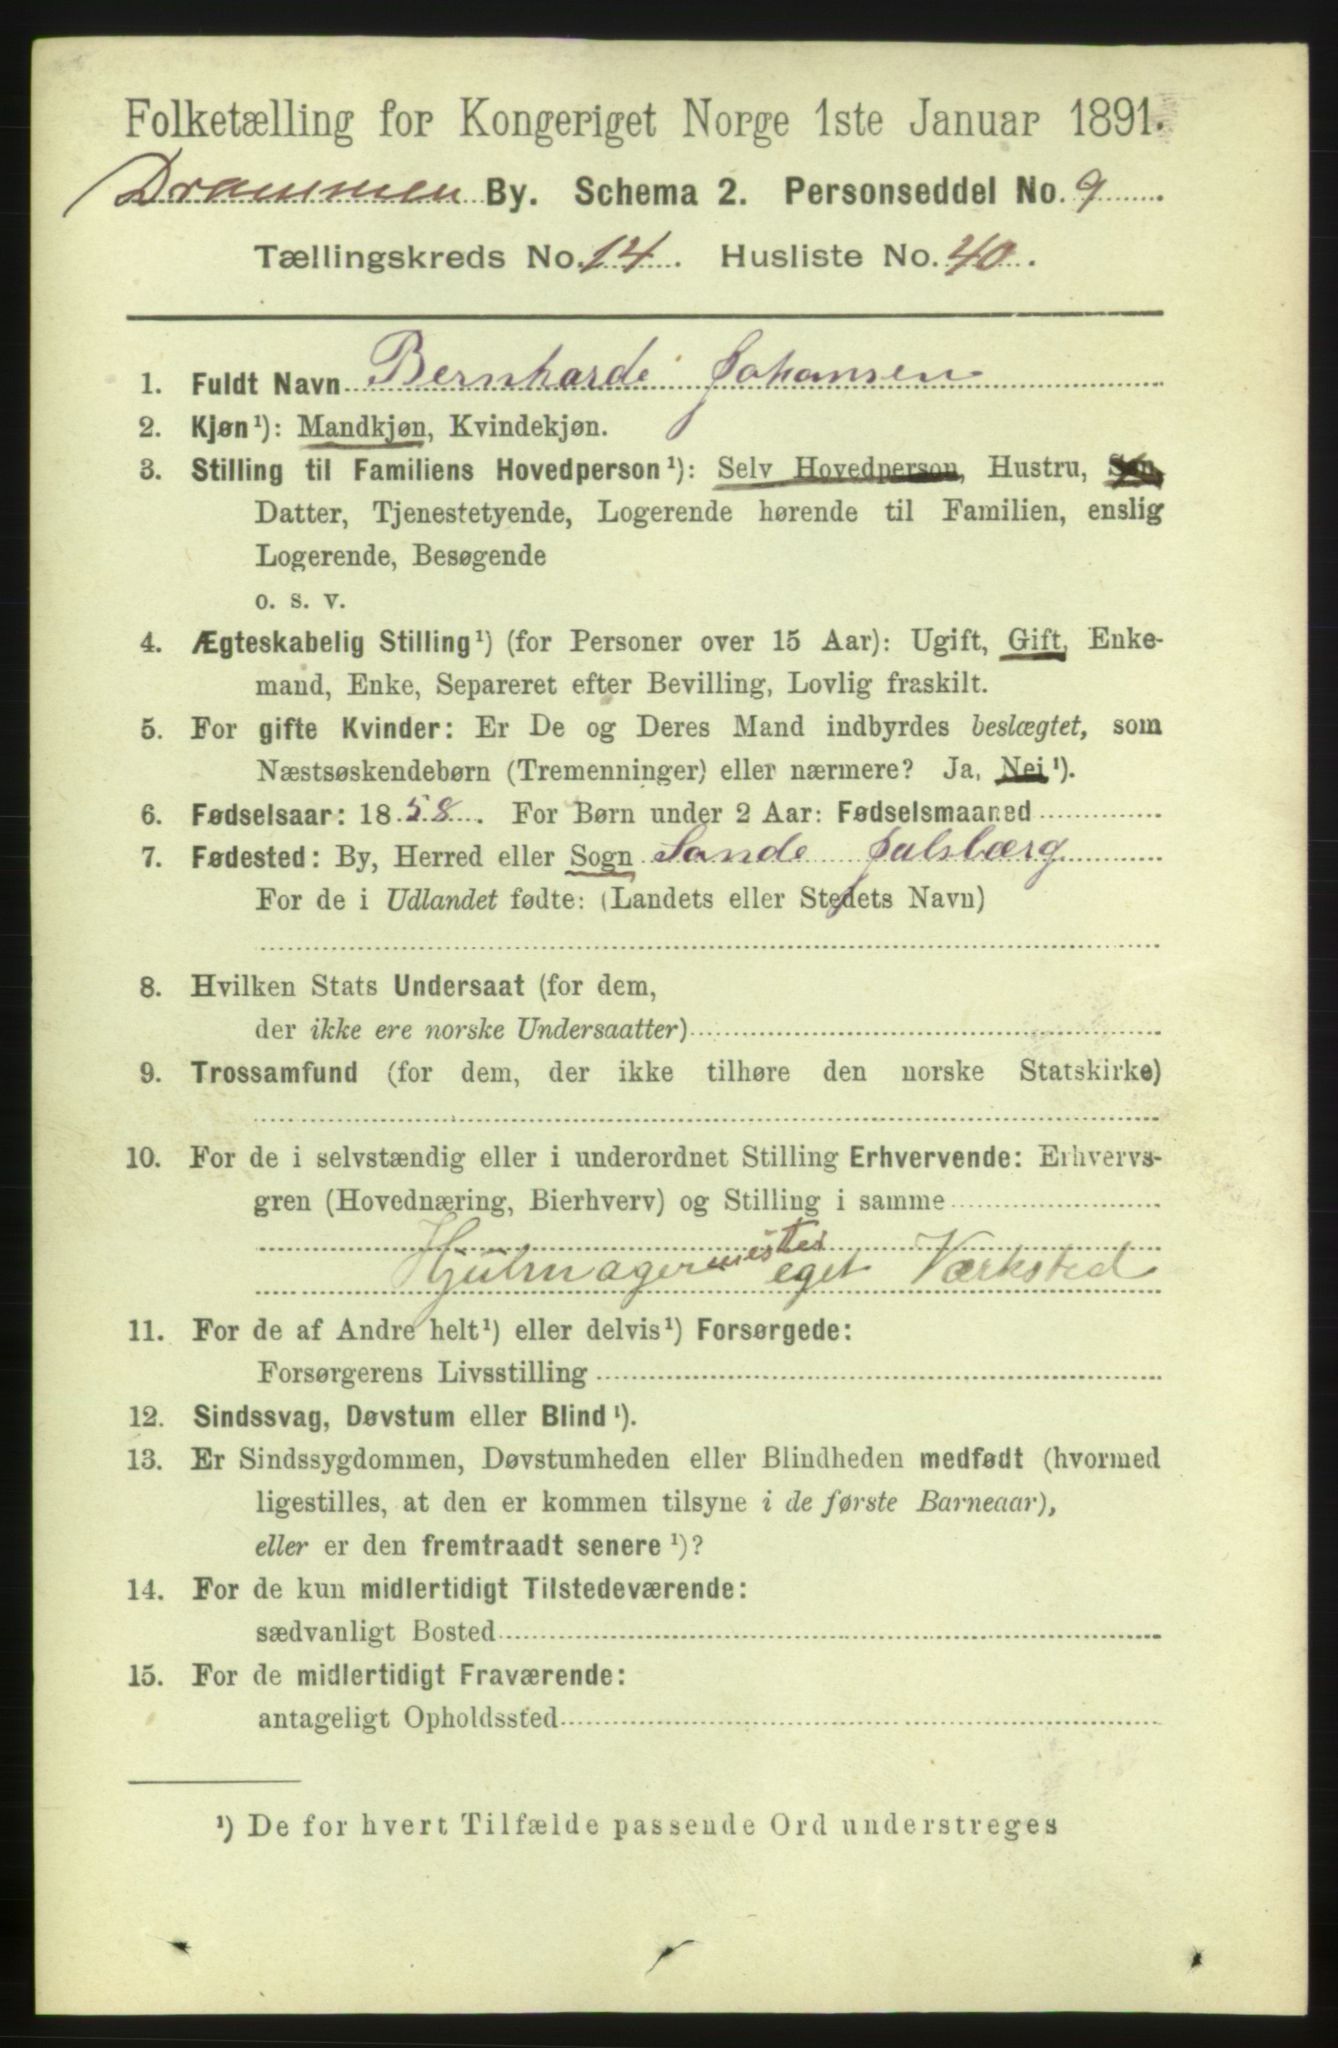 Folketælling for Kongeriget Norge 1ste Januar 1891.
Drammen By. Schema 2. Personseddel No. 9
Tællingskreds No. 14. Husliste No. 40.
1. Fuldt Navn Bernharde Johansen
2. Kjøn¹): Mandkjøn, Kvindekjøn.
3. Stilling til Familiens Hovedperson¹): Selv Hovedperson, Hustru, Søn,
Datter, Tjenestetyende, Logerende hørende til Familien, enslig
Logerende, Besøgende
o. s. v.
4. Ægteskabelig Stilling¹) (for Personer over 15 Aar): Ugift, Gift, Enke-
mand, Enke, Separeret efter Bevilling, Lovlig fraskilt.
5. For gifte Kvinder: Er De og Deres Mand indbyrdes beslægtet, som
Næstsøskendebørn (Tremenninger) eller nærmere? Ja, Nei¹).
6. Fødselsaar: 1858. For Børn under 2 Aar: Fødselsmaaned
7. Fødested: By, Herred eller Sogn Sande Jalsbærg
For de i Udlandet fødte: (Landets eller Stedets Navn)
8. Hvilken Stats Undersaat (for dem,
der ikke ere norske Undersaatter)
9. Trossamfund (for dem, der ikke tilhøre den norske Statskirke)
10. For de i selvstændig eller i underordnet Stilling Erhvervende: Erhvervs-
gren (Hovednæring, Bierhverv) og Stilling i samme
Hjulmagermester eget Værksted
11. For de af Andre helt¹) eller delvis¹) Forsørgede:
Forsørgerens Livsstilling
12. Sindssvag, Døvstum eller Blind¹).
13. Er Sindssygdommen, Døvstumheden eller Blindheden medfødt (hvormed
ligestilles, at den er kommen tilsyne i de første Barneaar),
eller er den fremtraadt senere¹)?
14. For de kun midlertidigt Tilstedeværende:
sædvanligt Bosted
15. For de midlertidigt Fraværende:
antageligt Opholdssted
¹) De for hvert Tilfælde passende Ord understreges